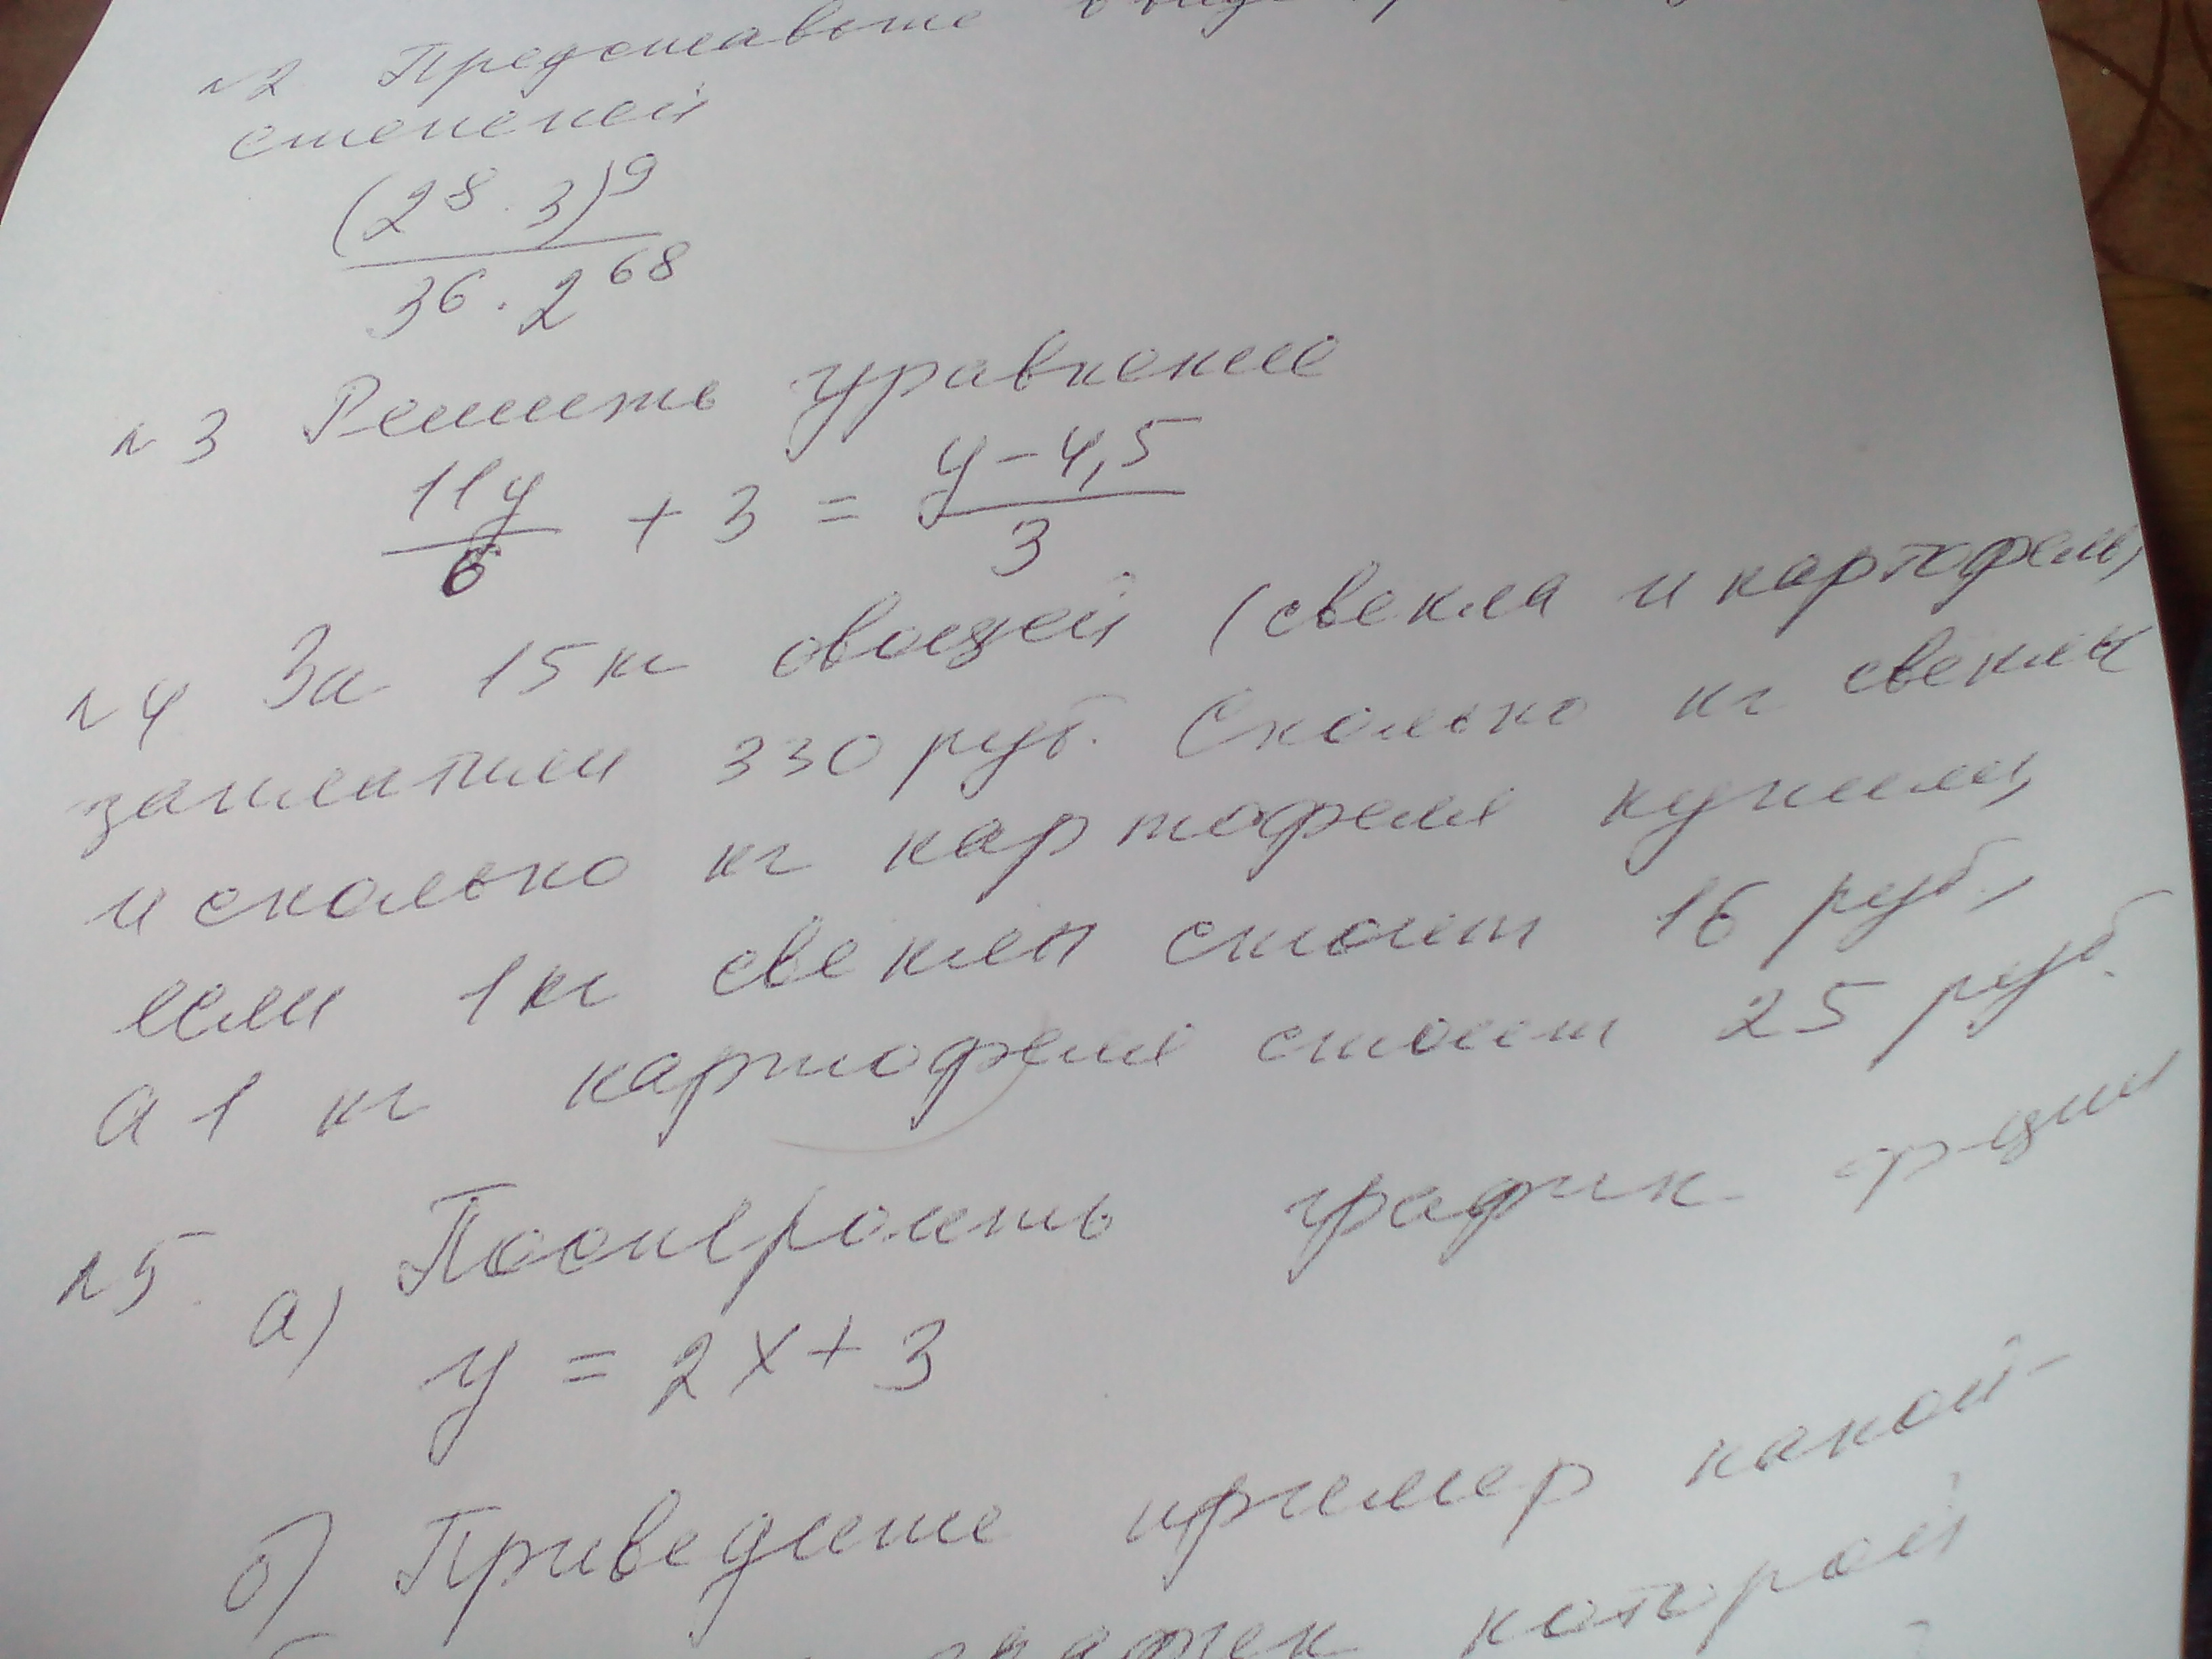 №2 Представьте в виде
степеней
(2⁸ · 3)⁹
3⁶ · 2⁶⁸
№3 Решить уравнение
11y/6 + 3 = y-4,5/3
№4 За 15 кг овощей (свекла и картофель)
заплатили 330 руб. Сколько кг свеклы
и сколько кг картофеля купили,
если 1 кг свеклы стоит 16 руб.,
а 1 кг картофеля стоит 25 руб.
№5. а) Построить график ф-ции
y = 2x + 3
б) Приведите пример какой-
график которой